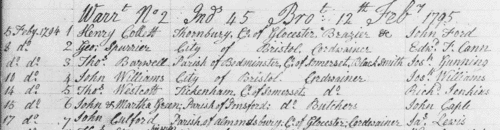 Warrt. No 2 Ind 45 Brot. 12th Feby 1795
5 Feby. 1794 1 Henry Collett Thornbury, C. of Glocester Brazier &c John Ford
8 do 2 Geo: Spurrier City of Bristol Cordwainer Edwd. T. Cann
do do 3 Thos. Barwell Parish of Bedminster, C. of Somerset, Black Smith Jos: Gunning
10 do 4 John Williams City of Bristol Cordwainer Jos: Williams
14 do 5 Thos. Westcott Tickenham, C. of Somerset do Richd. Jenkins
16 do 6 John & Martha Green, Parish of Pensford: do Butchers John Caple
17 do 7 John Culford Parish of Almondsbury, C. of Glocester: Cordwainer Jas: Lewis